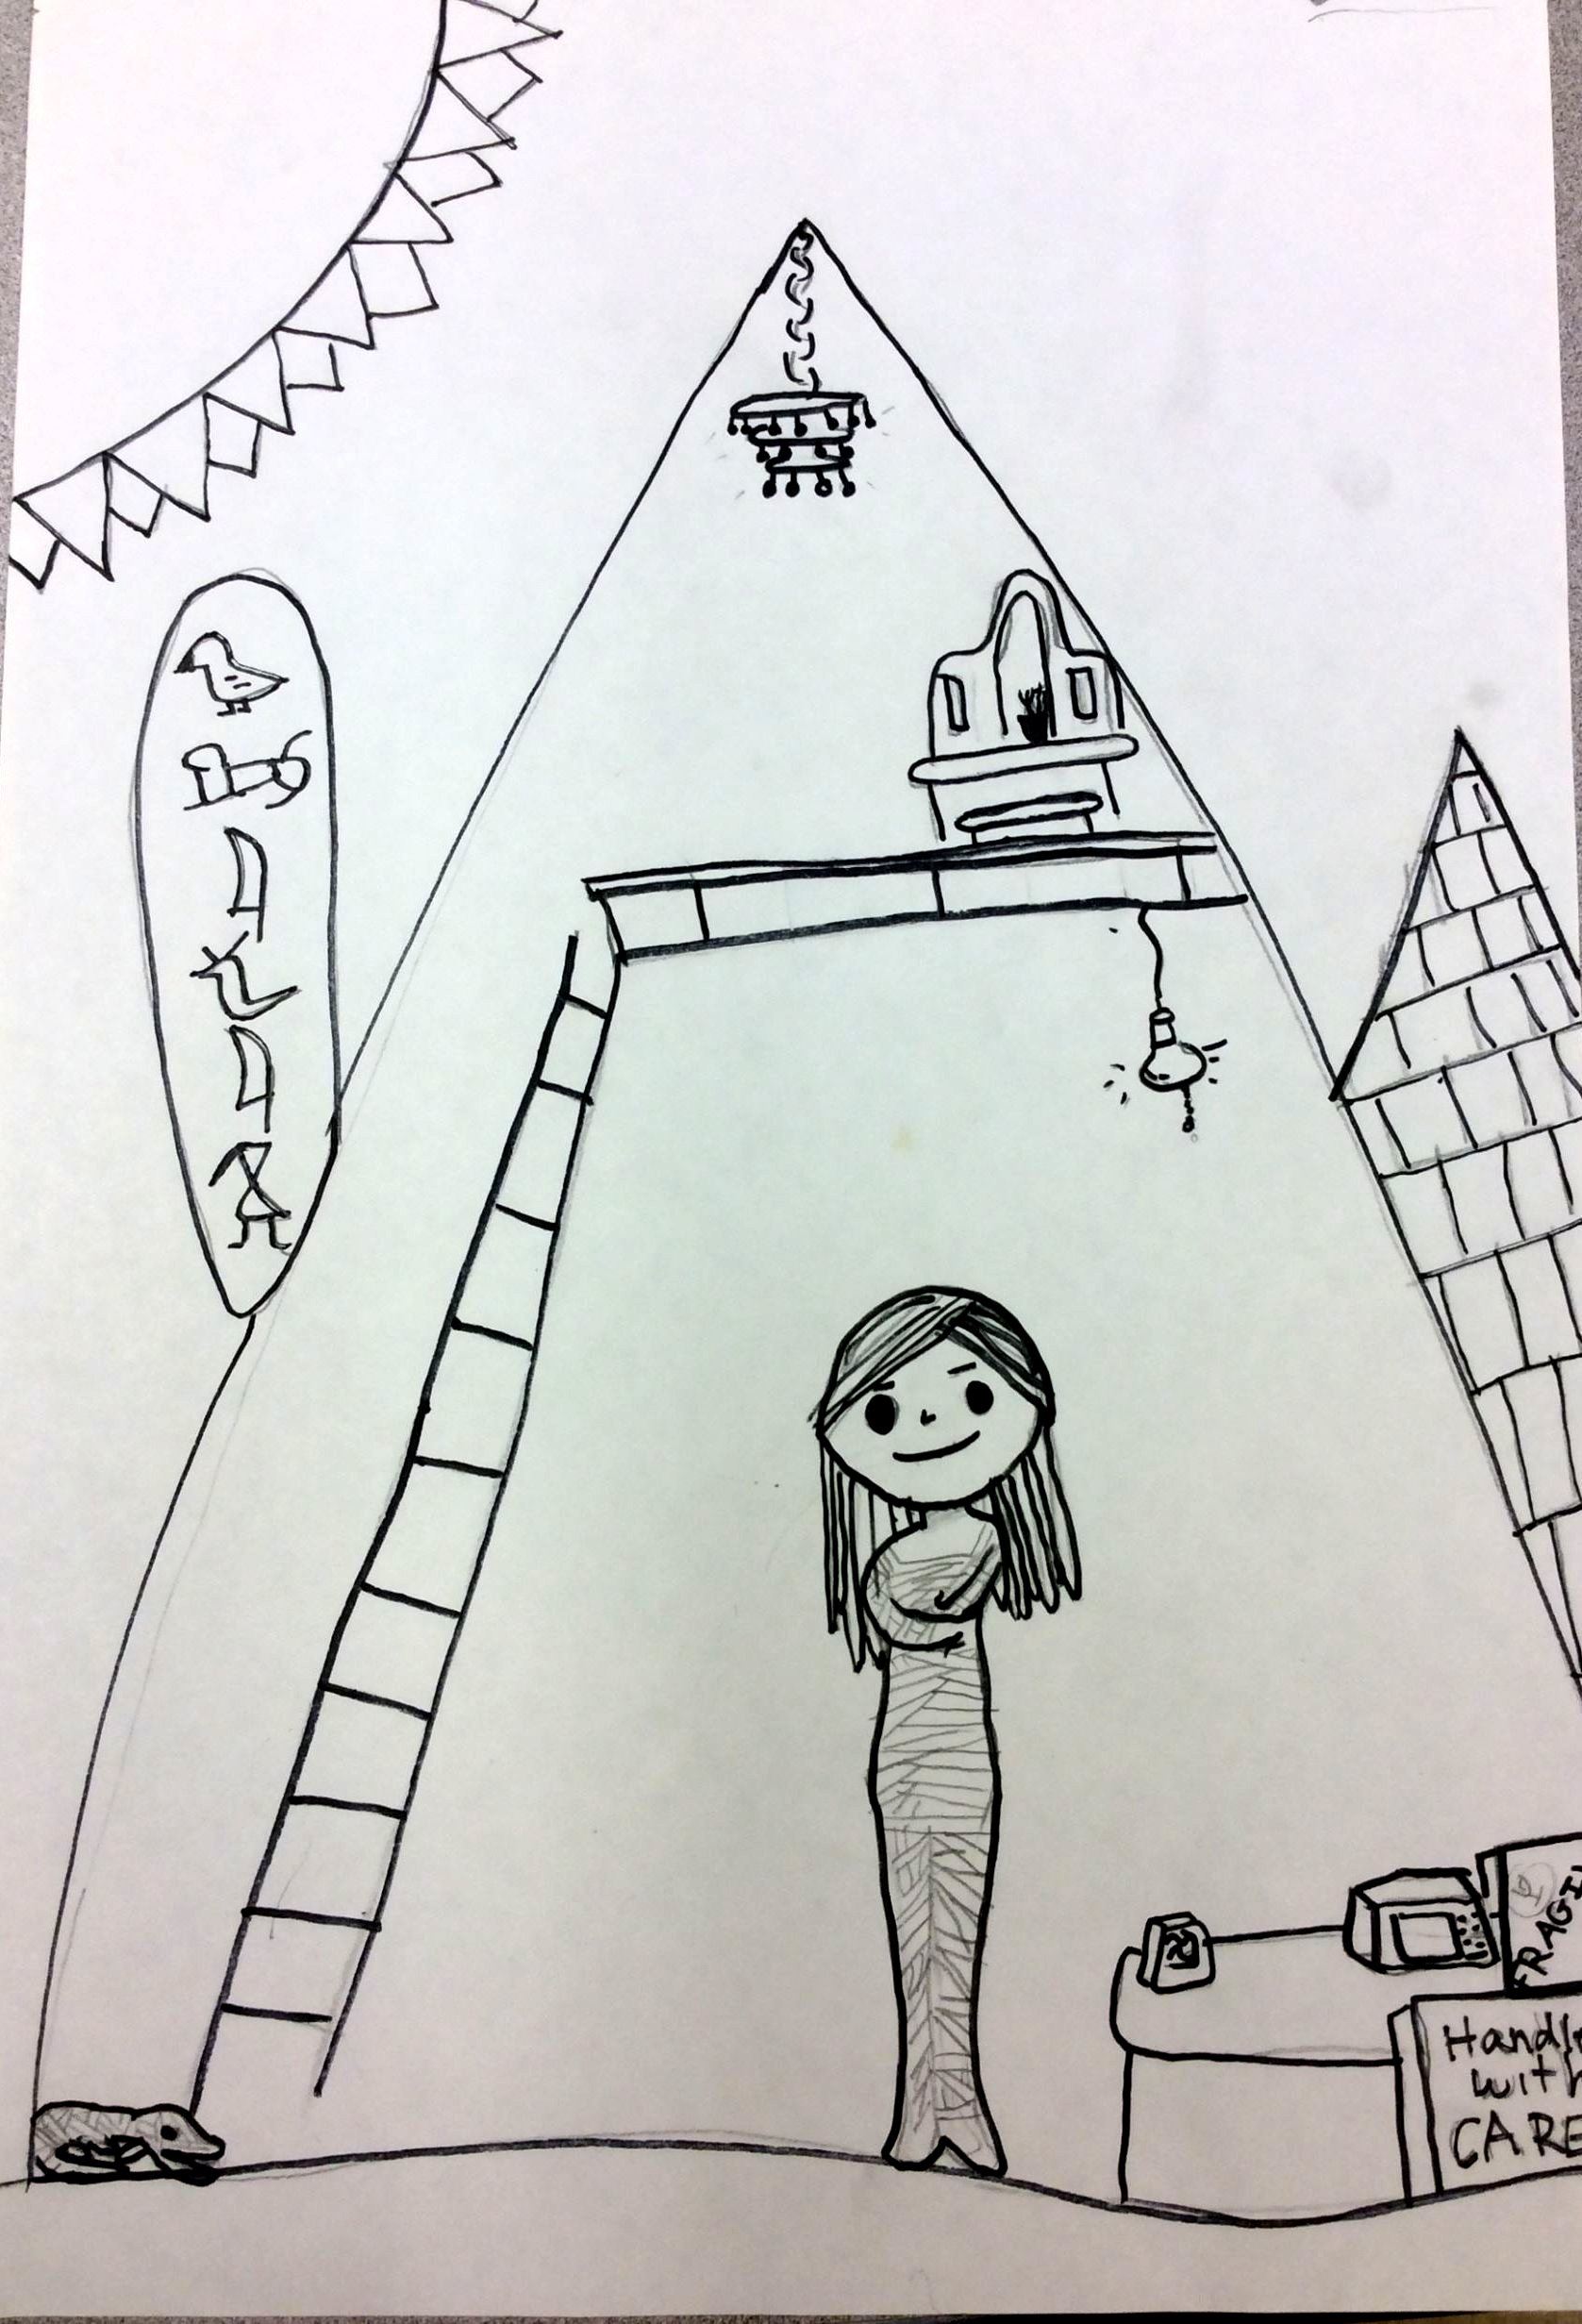 FRAGI
Handl
with
CARE